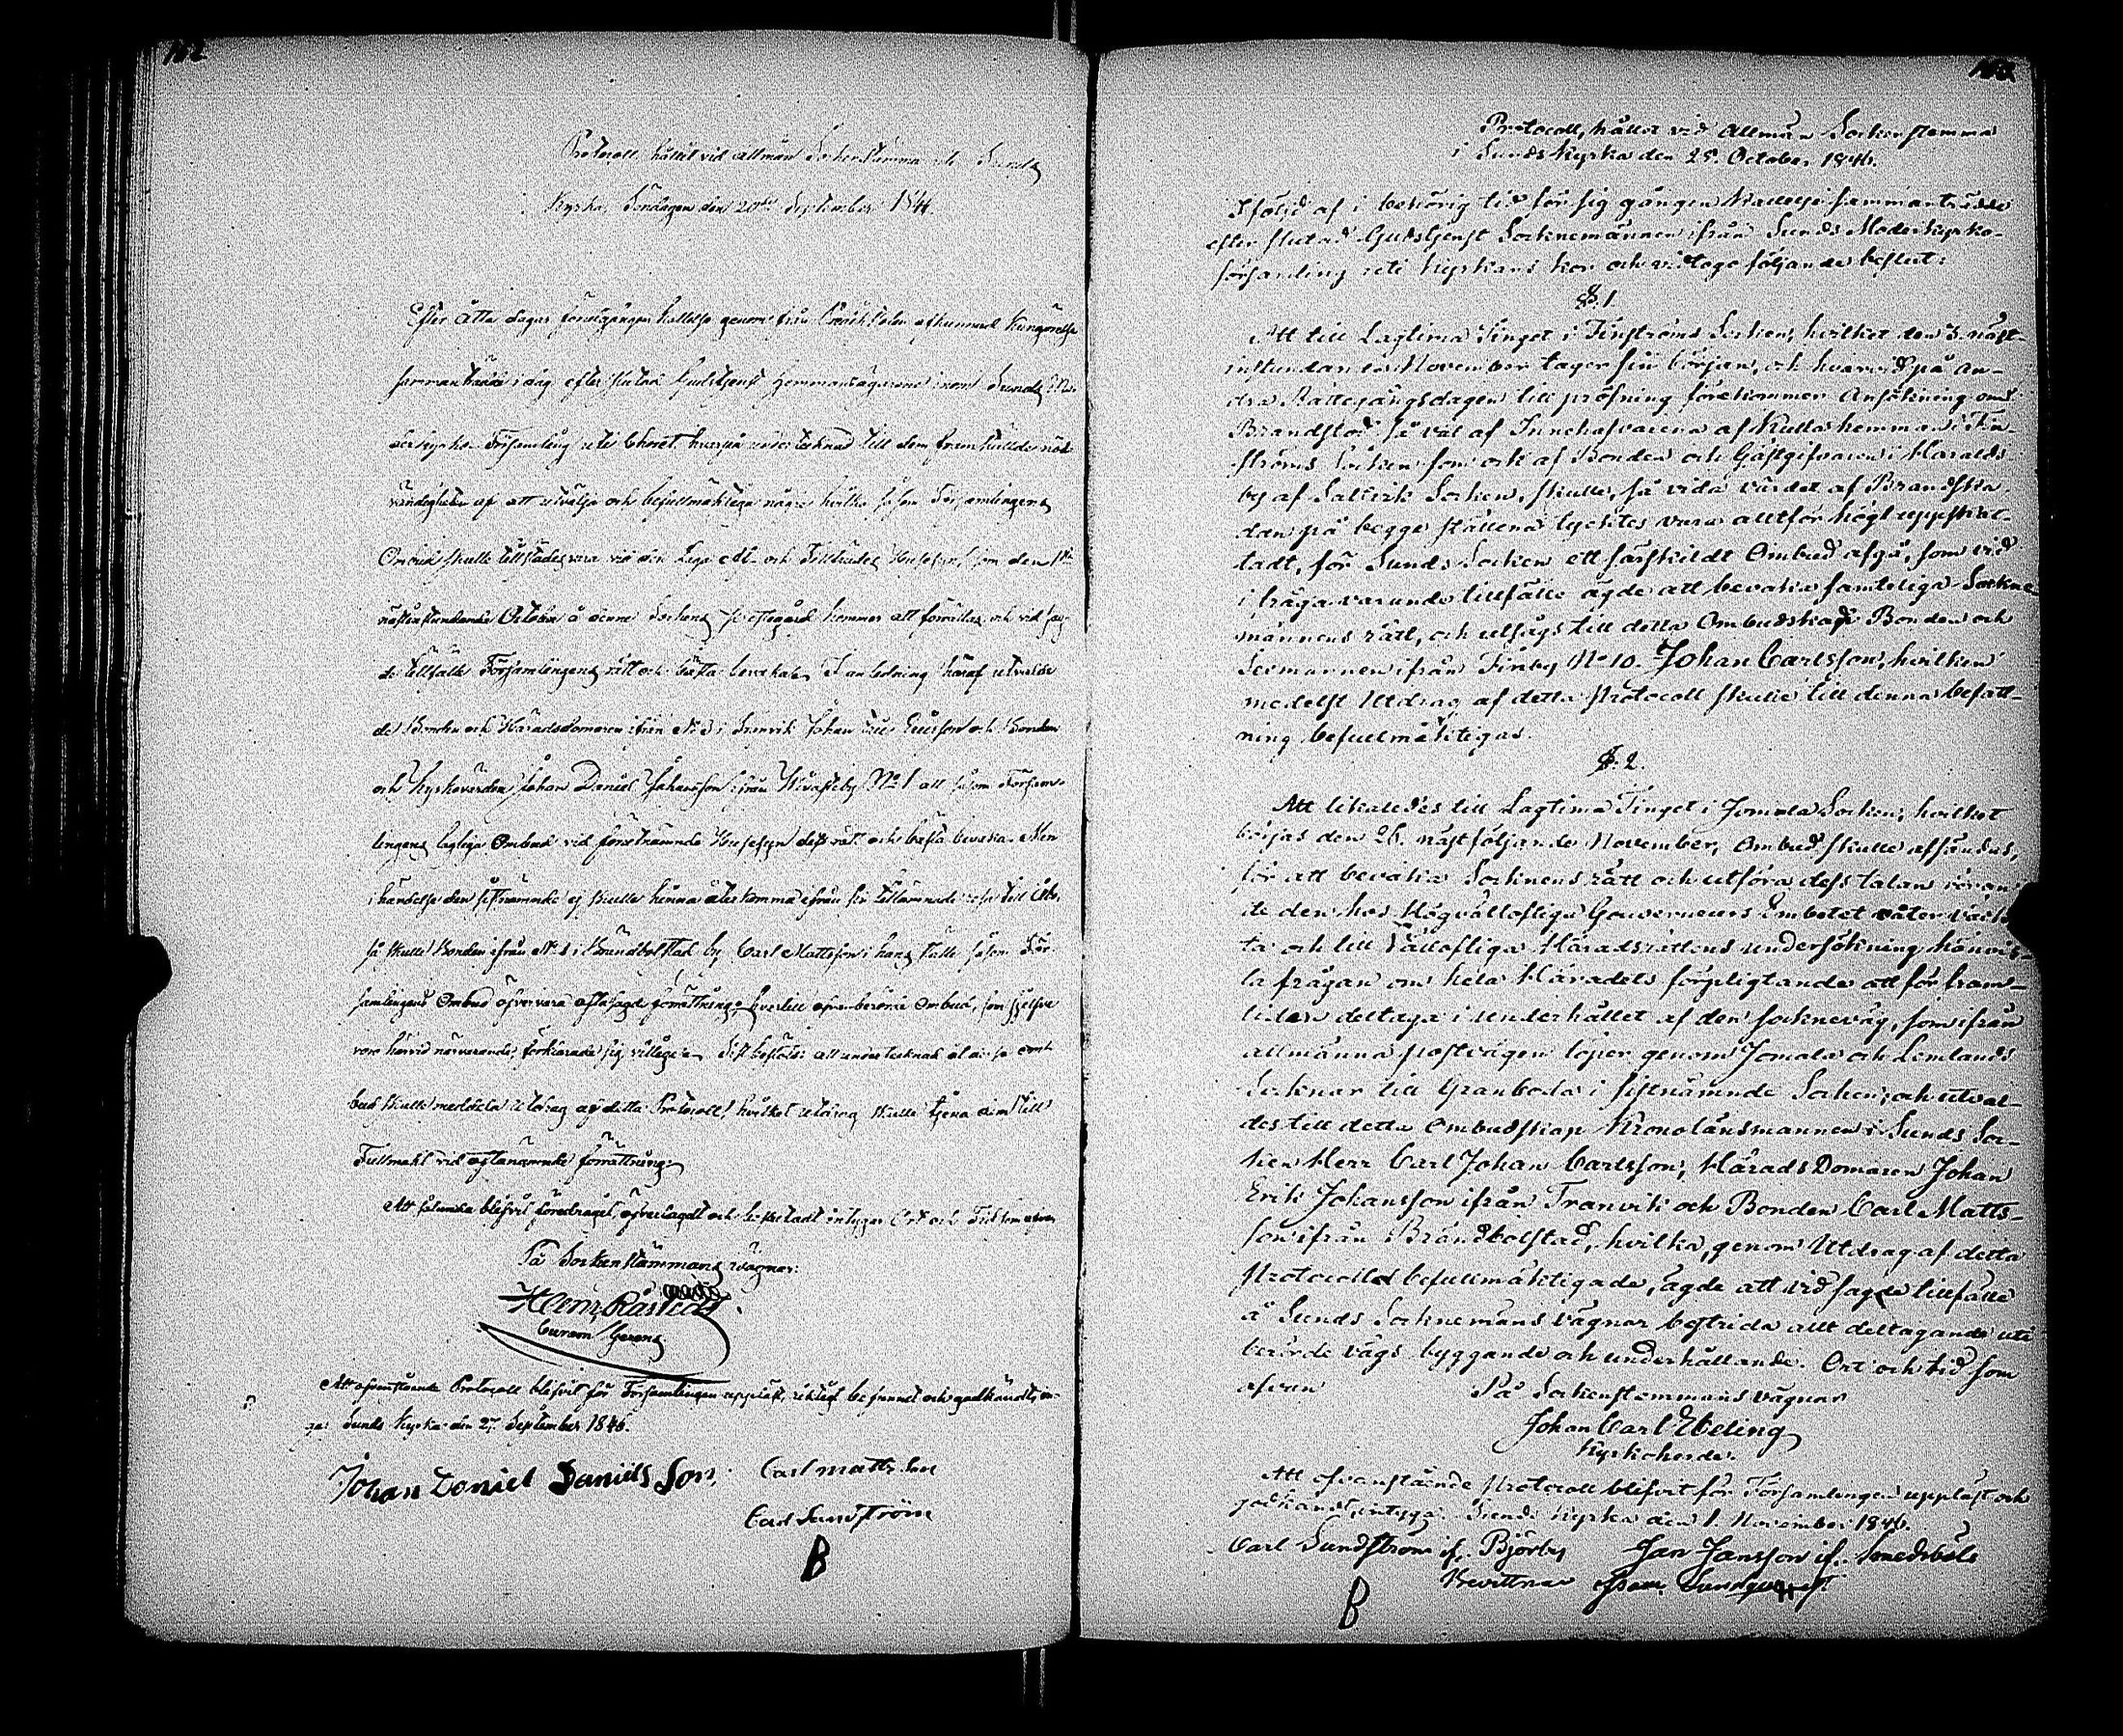 162
Protocoll, hållit vid allmän Sockenstämma uti Sunds
Kyrka, Söndagen den 20de September 1846.
Efter åtta dagar föregången kallelse genom från Predikstolen afkunnad Kungörelse
sammanträdde i dag efter slutad Gudstjenst Hemmansägarene inom Sunds Mo-
derkyrko Församling uti Choret hvarpå undertecknad till dem framställde nöd-
vändigheten af att utvälja och befullmäktiga några hvilka såsom Församlingens
Ombud skulle tillstädes vara vid den Laga Af- och Tillträdes Husesyn, som den 1sta
nästinstundande October å denne Sockens Prestegård kommer att förrättas och vid sag-
de tillfälle Församlingens rätt och bästa bevaka. I anledning häraf utvalde
de Bonden och Häradsdomaren ifrån No 3 i Tranvik Johan Eric Ersson och Bonden
och Kyrkovärden Johan Daniel Johansson ifrån Wivasteby No 1 att såsom Försam-
lingens lagliga Ombud vid förenämnde Husesyn dess rätt och bästa bevaka. Men
i händelse den sistnämnde ej skulle hinna återkomma ifrån sin tillämnade resa till Åbo,
så skulle Bonden ifrån No 1 i Brändbolstad by Carl Mattsson i hans ställe såsom För-
samlingens Ombud öfvervara oftasagde förrättning, hvartill ofvanberörde Ombud, som sjelfve
voro härvid närvarande, förklarade sig villige. Sist beslöts att undertecknad åt desse om-
bud skulle meddela utdrag af detta Protocoll, hvilket utdrag skulle tjena dem till
Fullmakt vid oftanämnde förrättning.
Att sålunda blifvit föredraget, öfverlagdt och beslutadt intygar Ort och Tid som ofvan
På Sockenstämmans vägnar:
Henr. Råstedt
Curam Gerens
Att ofvanstående Protocoll blifvit för Församlingen uppläst, riktigt befunnet och godkändt, in-
gar Sunds Kyrka den 27 September 1846.
Johan Daniel Danielsson. Carl Mattsson
Carl Sundström
B
163
Protocoll, hållet vid allmän Sockenstemma
i Sunds Kyrka den 25. October 1846.
I följd af i behörig tid för sig gången Kallelse sammanträdde
efter slutad Gudstjenst Socknemännen ifrån Sunds Moderkyrko-
församling uti Kyrkans kor och vidtogo följande beslut:
§. 1.
Att till Lagtima Tinget i Finströms Socken, hvilket den 3 näst-
instundande November tager sin början, och hvarvid på an-
dra Rättegångsdagen till pröfning förekommer Ansökning om
Brandstod så väl af Innehafvarena af Kulla hemman i Fin-
ströms Socken som ock af Bonden och Gästgifvaren i Haralds
by af Saltvik Socken, skulle, så vida värdet af Brandska-
dan på begge ställena tycktes vara alltför högt uppskat-
tadt, för Sunds Socken ett särskildt Ombud afgå, som vid
i fråga varande tillfälle ägde att bevaka samteliga Sockne-
männens rätt, och utsågs till detta Ombudskap Bonden och
Sexmannen ifrån Finby No 10. Johan Carlsson, hvilken
medelst Utdrag af detta Protocoll skulle till denna befatt-
ning befullmäktigas.
§. 2.
Att likaledes till Lagtima Tinget i Jomala Socken, hvilket
börjas den 26. nästföljande November, Ombud skulle afsändas,
för att bevaka Socknens rätt och utföra dess talan röran-
de den hos Högvällofliga Gouverneurs Embetet åter väck-
ta och till Vällofliga Häradsrättens undersökning hänvis-
ta frågan om hela Häradets förpligtande att för fram-
tiden deltaga i underhållet af den sockneväg, som ifrån
allmänna postvägen löper genom Jomala och Lemlands
Socknar till Granboda i sistnämnde Socken; och utval-
des till detta Ombudskap Kronolänsmannen i Sunds Soc-
ken Herr Carl Johan Carlsson, HäradsDomaren Johan
Erik Johansson ifrån Tranvik och Bonden Carl Matts-
son ifrån Brändbolstad, hvilka, genom Utdrag af detta
Protocoll befullmäktigade, ägde att vid sagde tillfälle
å Sunds Socknemäns vägnar bestrida allt deltagande uti
berörde vägs byggande och underhållande. Ort och tid som
ofvan På Sockenstemmans vägnar
Johan Carl Ebeling
Kyrkoherde.
Att ofvanstående Protocoll blifvit för Församlingen uppläst och
godkändt, intyga. Sunds Kyrka den 1 November 1846.
Carl Sundström if. Björby Jan Jansson if. Smedsböle
Bevittnar Sundqvist
B